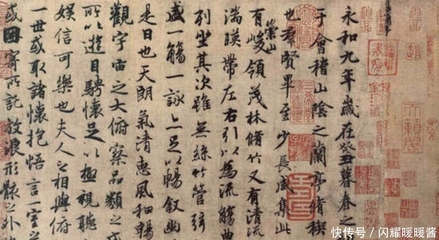 永和九年歲在癸丑暮春之
于會稽山陰之蘭亭脩稧
也群賢畢至少長咸集此
有崇山峻領茂林脩竹又有清流
湍暎帶左右引以為流觴曲
列坐其次雖無絲竹管弦
盛一觴一詠亦足以暢敘幽
是日也天朗氣清惠風和暢
觀宇宙之大俯察品類之
所以遊目騁懷足以極視聽
娛信可樂也夫人之相與俯
一世或取諸懷抱悟言一室
或因寄所託放浪形骸之外
快传号/闪耀暖暖酱